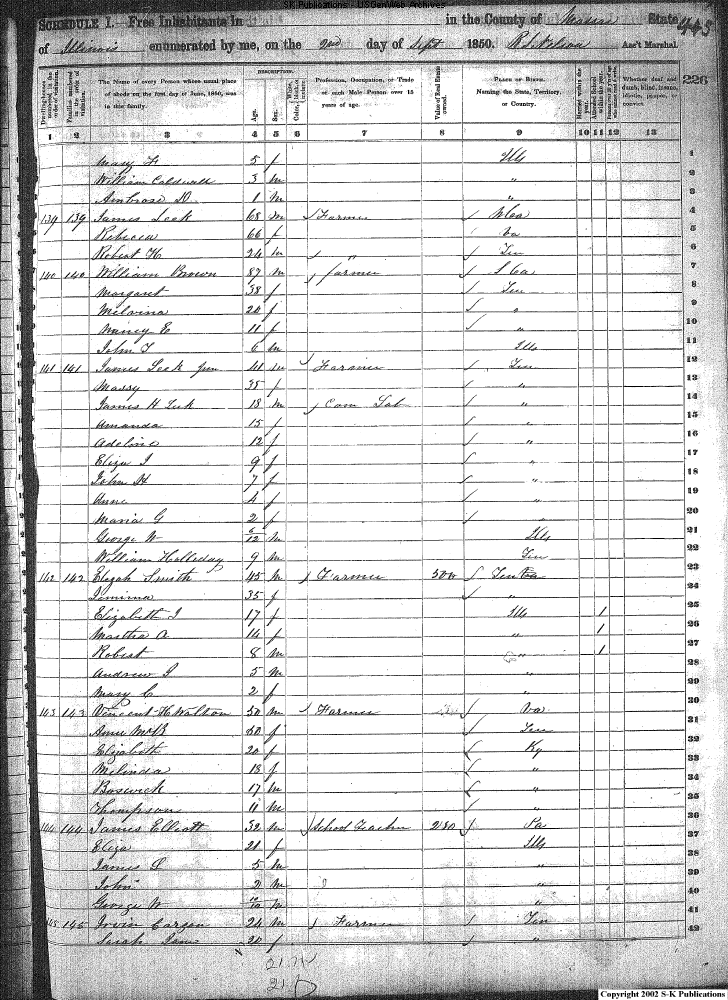 S-K Publications - USGenWeb Archives
SCHEDULE I.—Free Inhabitants in in the County of State 445
of Illinois enumerated by me, on the 2nd day of Sept 1850. Ass't Marshal.
226
DESCRIPTION.
The Name of every Person whose usual place of abode on the first day of June, 1850, was in this family.
Age.
Sex.
Profession, Occupation, or Trade of each Male Person over 15 years of age.
Value of Real Estate owned.
PLACE OF BIRTH. Naming the State, Territory, or Country.
Whether deaf and dumb, blind, insane, idiotic, pauper, or convict.
1 2 3 4 5 6 7 8 9 10 11 12 13
Mary 5 f Ills 1
William Caldwell 3 m " 2
Ambrose D 1 m " 3
139 139 James Leek 68 m Farmer N Ca 4
Rebecca 66 f Va 5
Robert H 24 m " Ten 6
140 140 William Brown 87 m farmer S Ca 7
Margaret 38 f Ten 8
Melvina 20 f " 9
Nancy E 11 f " 10
John T 6 m Ills 11
141 141 James Leek jun 41 m Farmer Ten 12
Massy 35 f " 13
James H Leek 18 m Com Lab " 14
Amanda 15 f " 15
Adeline 12 f " 16
Eliza J 9 f " 17
John H 7 f " 18
Anne 4 f " 19
Maria G 2 f " 20
George W 6/12 m Ills 21
William Holleday 9 m Ten 22
142 142 Elijah Smith 45 m Farmer 500 Ten 23
Jemima 35 f " 24
Elizabeth J 17 f Ills 1 25
Martha A 14 f " 1 26
Robert 8 m " 1 27
Andrew J 5 m " 28
Mary C 2 f " 29
143 143 Vincent H Walton 50 m Farmer Va 30
Ann McB 50 f Ten 31
Elizabeth 20 f Ky 32
Melinda 18 f " 33
Boswick 17 m " 34
Thompson 11 m " 35
144 144 James Elliott 32 m School Teacher 250 Pa 36
Eliza 21 f Ills 37
James 5 m " 38
John 2 m " 39
George W m " 40
145 145 Irvin Cargen 24 m Farmer Ten 41
Sarah Jane 20 f " 42
Copyright 2002 S-K Publications